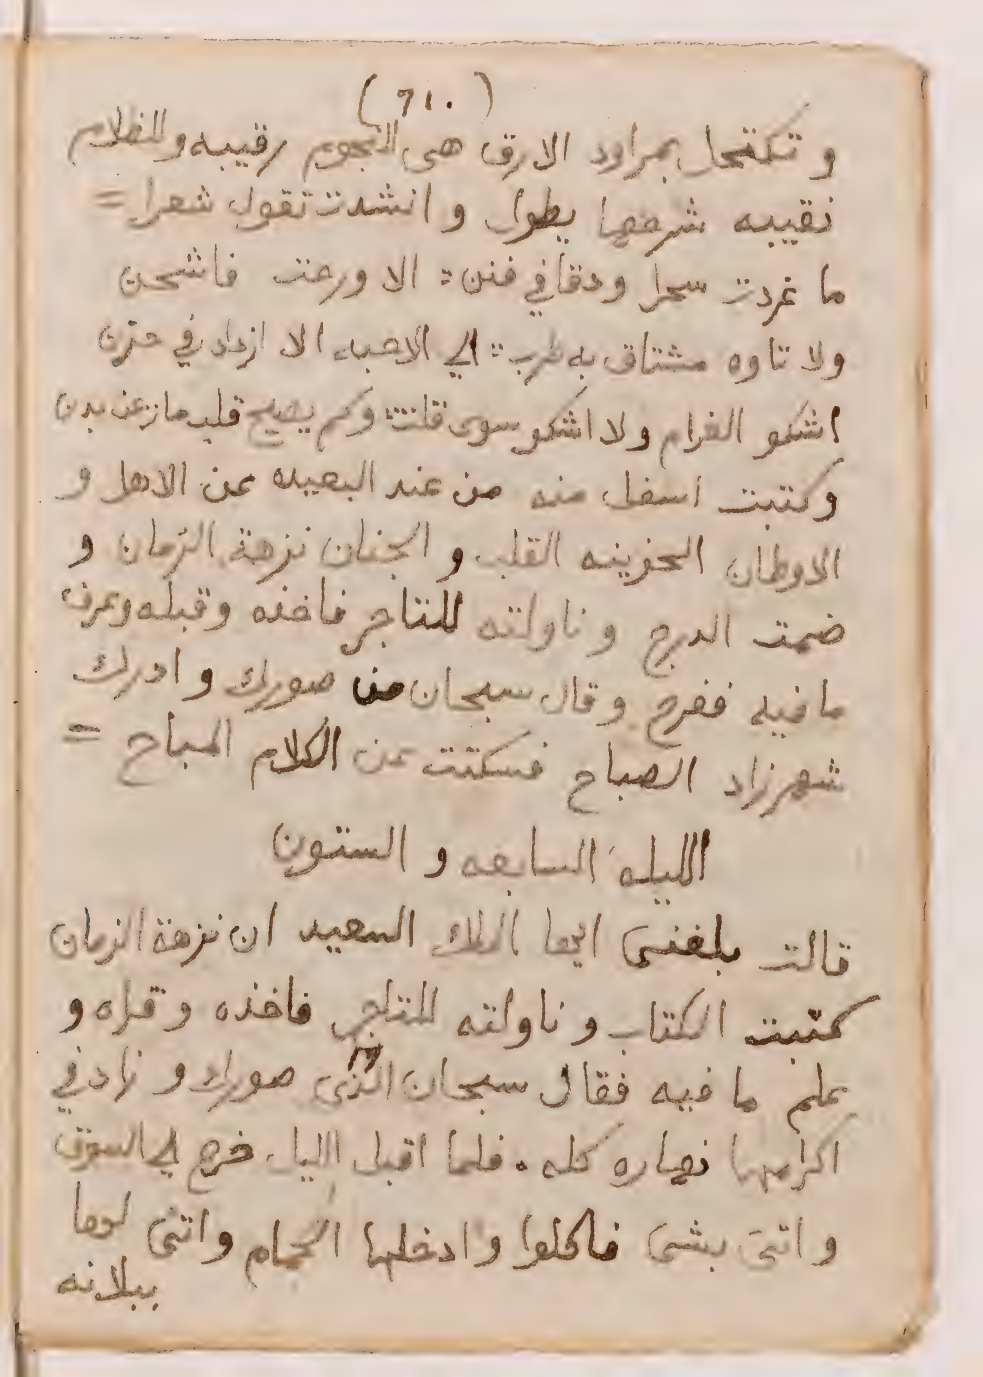 (٦١٠)
و تكتحل بمراود الارق هى النجوم رقيبه والظلام
نقيبه شرحها يطول وانشدت تقول شعرا =
ما غردت سحرا ورقا في فنن : الا ورعت فاشحن
ولا تاوه مشتاق به طرب : الي الاحبه الا ازداد في حزن
اشكو الغرام ولا اشكو سوى قلت وكم يصيح قلب مازعن بدن
وكتبت اسفل منه من عند البعيده عن الاهل و
الاوطان الحزينه القلب و الجنان نزهة الزمان و
ضمت الدرج وناولته للتاجر فاخذه وقبله وعرف
ما فيه ففرح وقال سبحان من صورك وادرك
شهرزاد الصباح فسكتت عن الكلام المباح =
الليله السابعه و الستون
قالت بلغنى ايها الملك السعيد ان نزهة الزمان
كتبت الكتاب وناولته للتاجر فاخذه وقراه و
علم ما فيه فقال سبحان الذى صورك وزاد في
اكرامها نهاره كله . فلما اقبل الليل خرج الي السوق
واتى بشى فاكلوا وادخلها الحمام واتى لوها
ببلانه